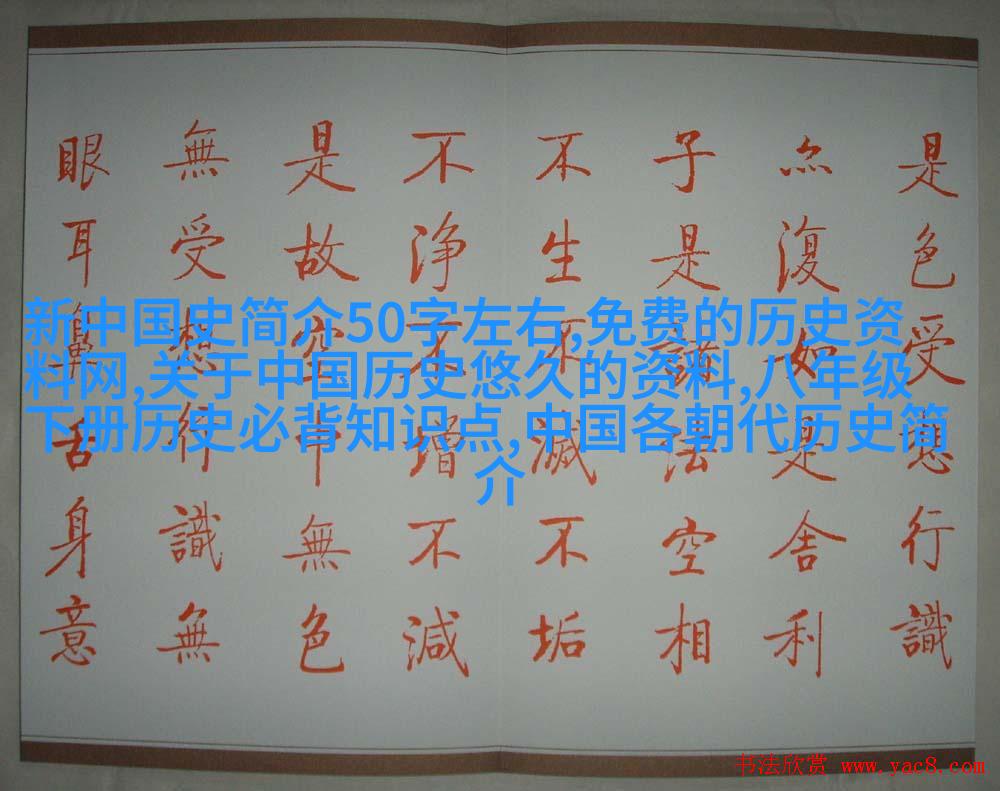 是色受想行識
亦復如是舍利
子是諸法空相
不生不滅不垢
不淨不增不減
是故空中無色
無受想行識無
眼耳鼻舌身意
新中国史简介50字左右,免费的历史资
料网,关于中国历史悠久的资料,八年级
下册历史必背知识点,中国各朝代历史简
介
书法欣赏 www.yac8.com